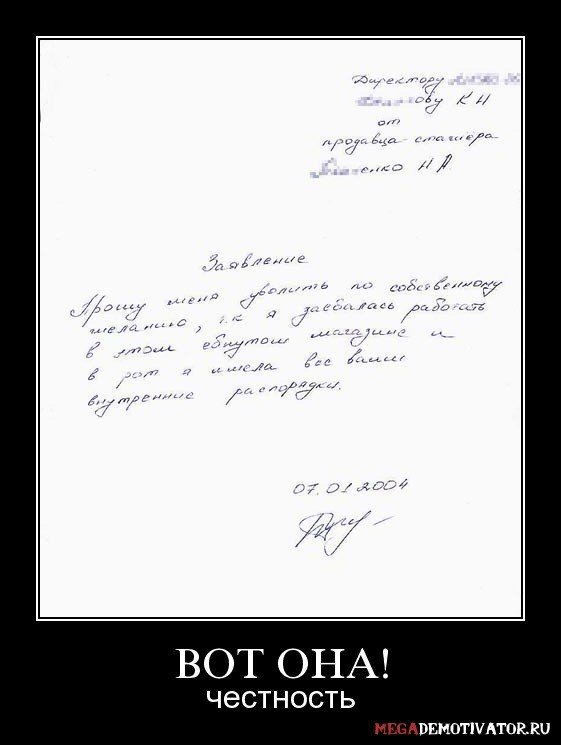 Директору
ову К Н
от
продавца-стажера
енко Н А
Заявление
Прошу меня уволить по собственному
желанию, т.к я заебалась работать
в этом ебнутом магазине и
в рот я имела все ваши
внутренние распорядки.
07.01.2004
ВОТ ОНА!
честность
MEGADEMOTIVATOR.RU